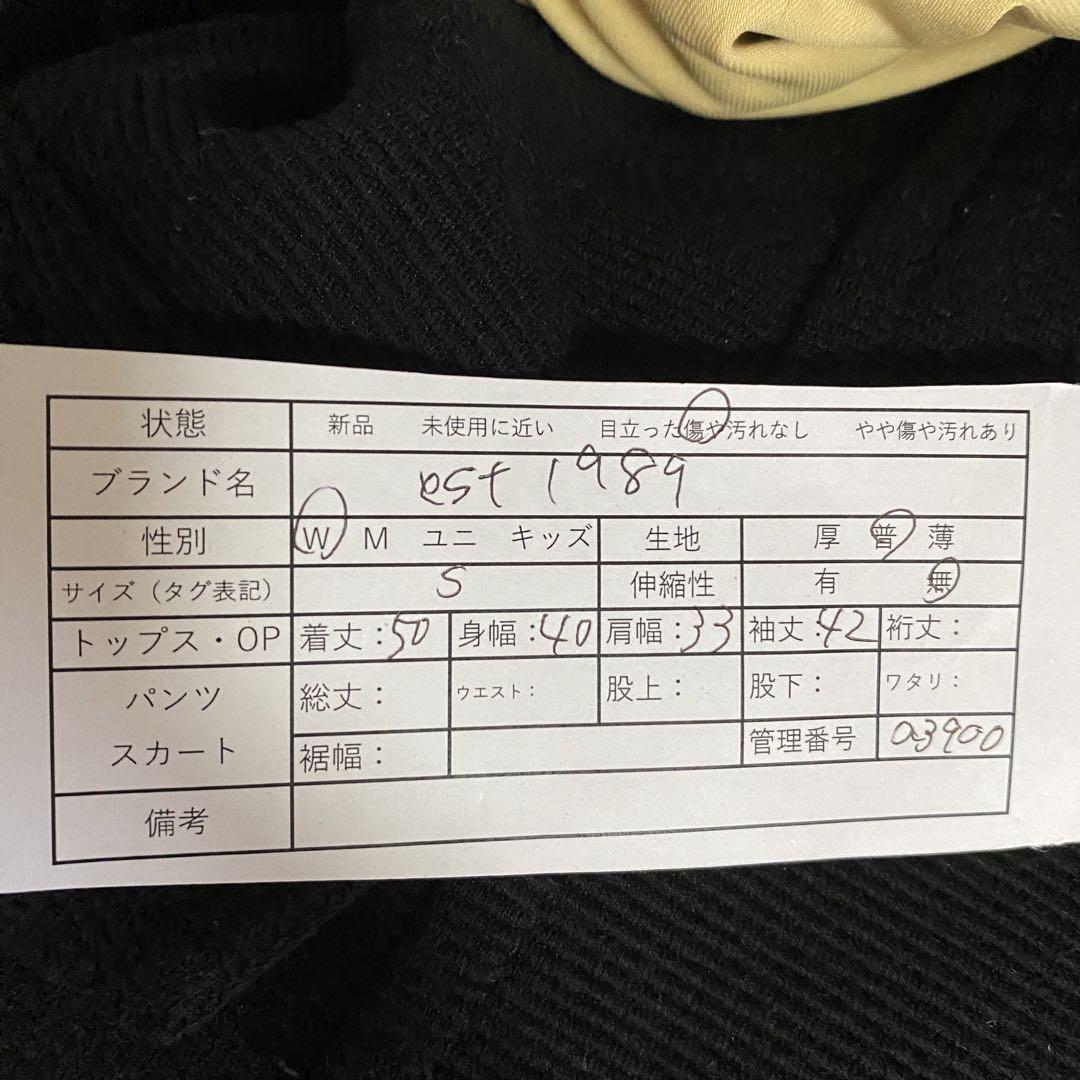 状態 新品 未使用に近い 目立った傷や汚れなし やや傷や汚れあり
ブランド名 est 1989
性別 W M ユニ キッズ 生地 厚 普 薄
サイズ（タグ表記） S 伸縮性 有 無
トップス・OP 着丈：50 身幅：40 肩幅：33 袖丈：42 裄丈：
パンツ 総丈： ウエスト： 股上： 股下： ワタリ：
スカート 裾幅： 管理番号 a3900
備考